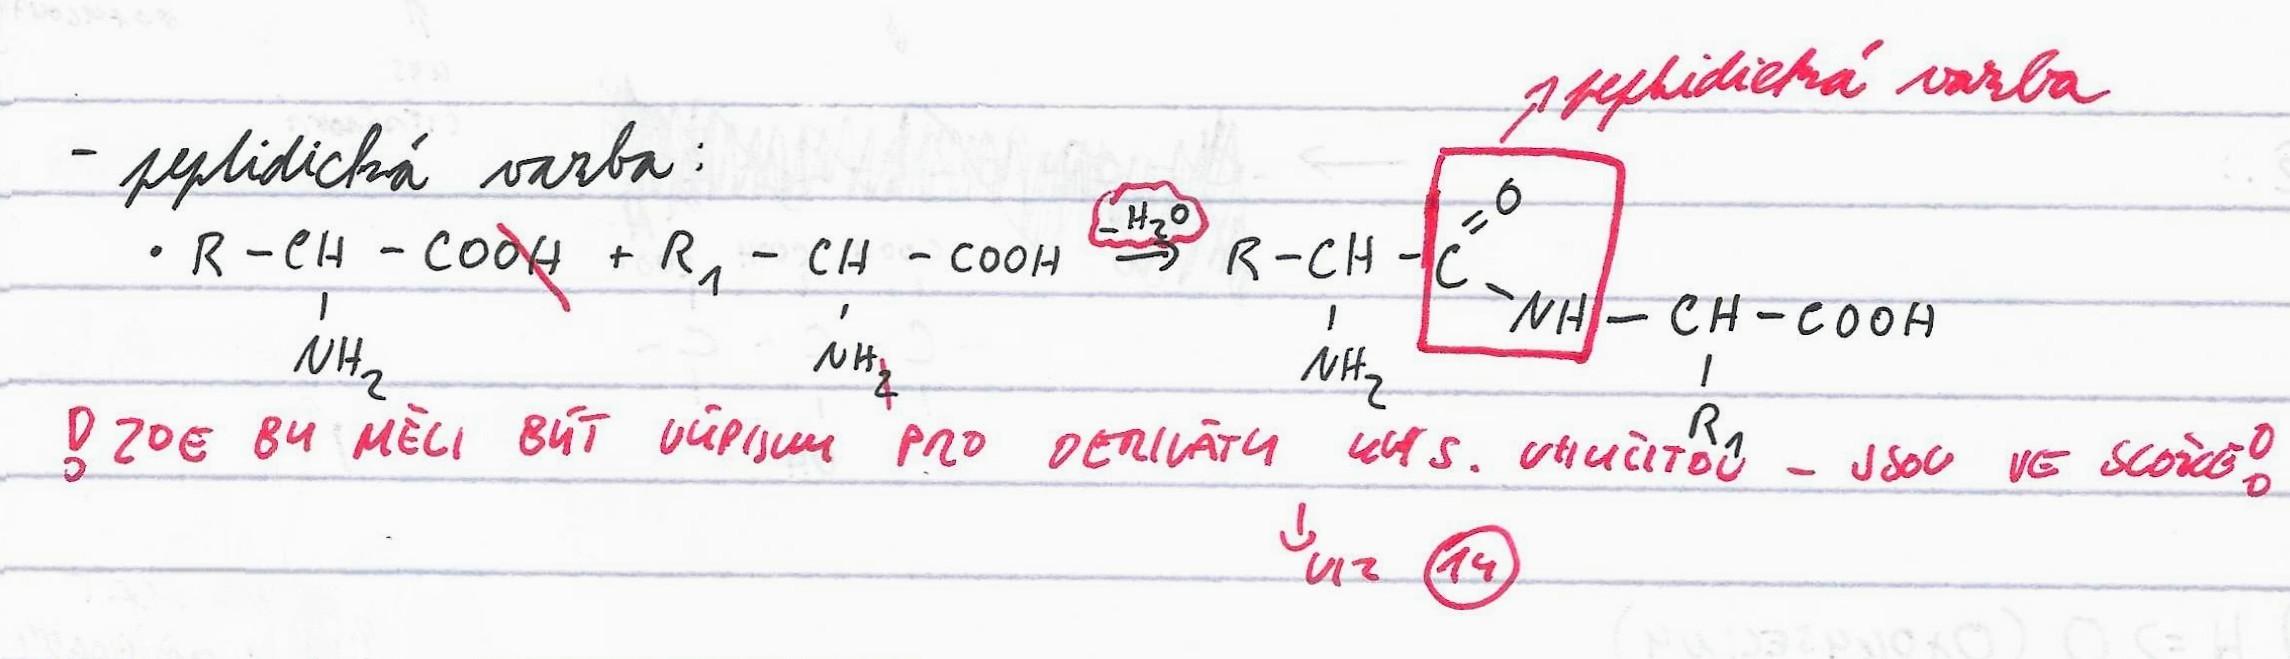 peptidická vazba
- peptidická vazba:
-H2O
O
• R - CH - COOH + R1 - CH - COOH → R - CH - C
NH - CH - COOH
NH2 NH2 NH2
R1
! ZDE BY MĚLI BÝT VÝPISKY PRO DERIVÁTY KYS. UHLIČITOU - JSOU VE SLOŽCE!
↓
VIZ 14